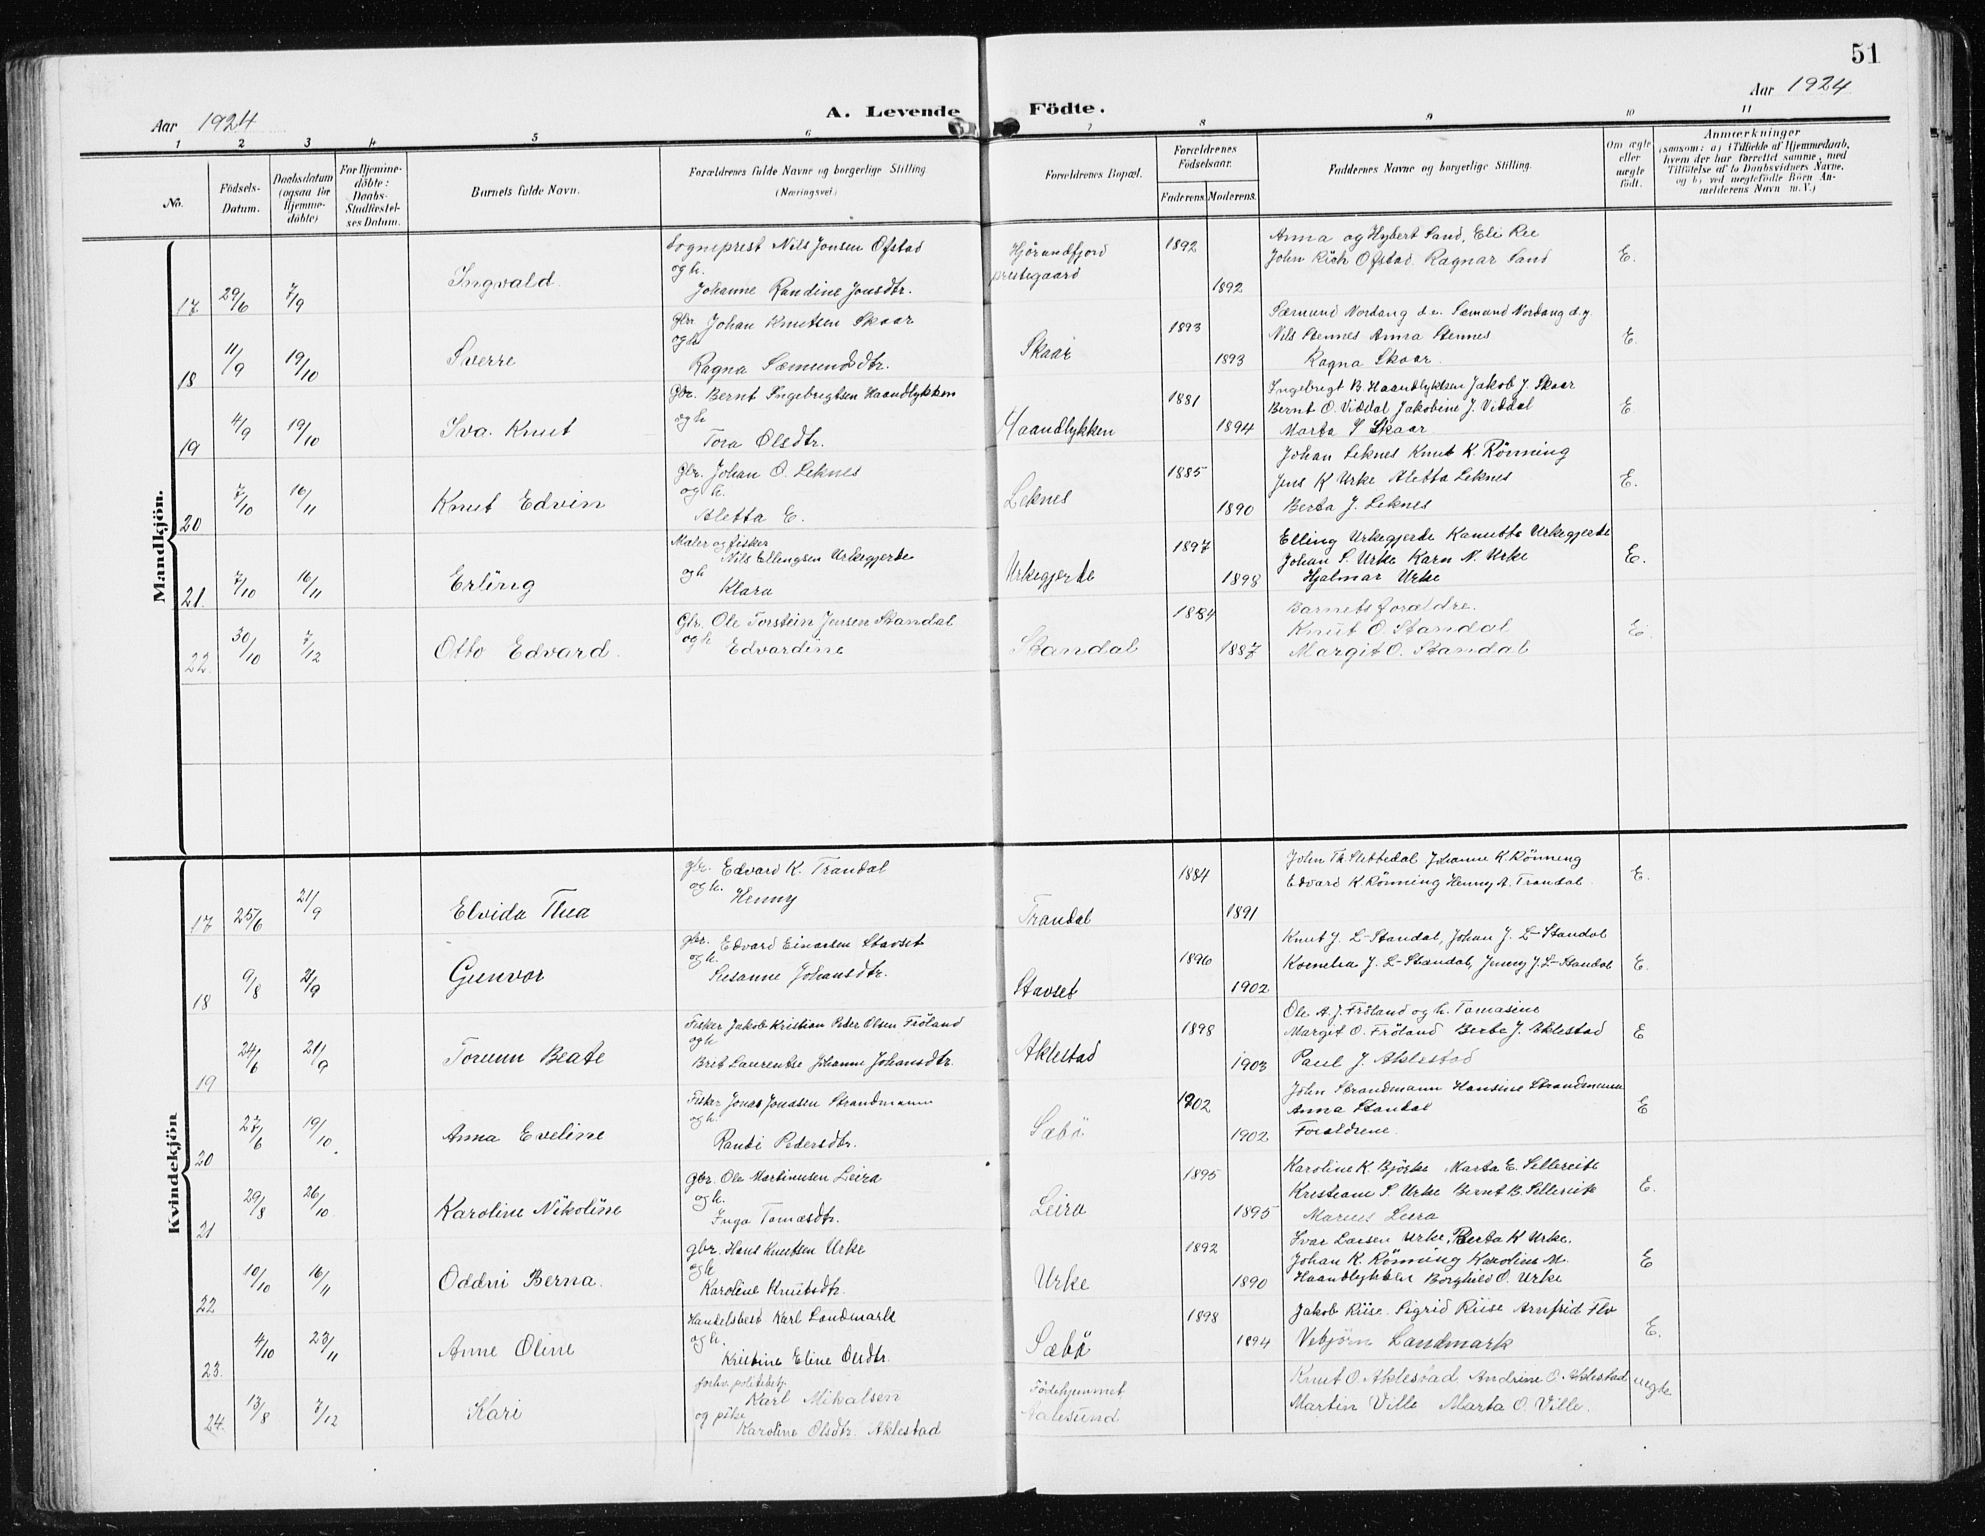 51
Aar 1924
A. Levende Födte.
Aar 1924
1 2 3 4 5 6 7 8 9 10 11
No.
Födsels-Datum.
Daabsdatum (ogsaa for Hjemme-döbte)
For Hjemme-döbte: Daabs-Stadfæstel-ses Datum.
Barnets fulde Navn.
Forældrenes fulde Navne og borgerlige Stilling (Næringsvei)
Forældrenes Bopæl.
Forældrenes Födselsaar.
Faderens. Moderens.
Faddernes Navne og borgerlige Stilling.
Om ægte eller uægte födt.
Anmærkninger
(saasom: a) i Tilfælde af Hjemmedaab, hvem der har forrettet samme, med Tilföielse af to Daabsvidners Navne, og b) ved uægtefödte Börn An-melderens Navn m. V.)
Mandkjön.
17 29/6 7/9 Ingvald Sogneprest Nils Jonsen Ofstad og h. Johanne Randine Jonsdtr. Hjörundfjord prestegaard 1892 1892 Anna og Hybert Sand, Eli Ree John Rich Ofstad Ragnar Sand E.
18 11/9 19/10 Sverre Gbr Johan Knutsen Skaar og h Ragna Sæmundsdtr. Skaar 1893 1893 Sæmund Nordang d.e. Sæmund Nordang d.y Nils Stennes Anna Stennes Ragna Skaar. E.
19 4/9 19/10 Iva. Knut Gbr. Bernt Ingebrigtsen Haandlykken og h Tora Olsdtr. Haandlykken 1881 1894 Ingebrigt B. Haandlykken Jakob J. Skaar Bernt O. Viddal Jakobine J. Viddal Marta I Skaar E
20 7/10 16/11 Knut Edvin Gbr. Johan O. Leknes og h. Aletta E. Leknes 1885 1890 Johan Leknes Knut K. Rönning Jens K Urke Aletta Leknes Berta J. Leknes E.
21. 7/10 16/11 Erling Maler og fisker Nils Ellingsen Urkegjerde og h Klara Urkegjerde 1897 1898 Elling Urkegjerde Kanutta Urkegjerde Johan S. Urke Karn N. Urke Hjalmar Urke E.
22. 30/10 7/12 Otto Edvard. Gbr. Ole Torstein Jensen Standal og h Edvardine Standal 1884 1887 Barnets foraldre. Knut O. Standal Margit O. Standal E.
Kvindekjön
17 25/6 21/9 Elvida Thea gbr. Edvard K. Trandal og h. Henny Trandal 1884 1891 John Th. Slettedal Johanne K. Rönning Edvard K. Rönning Henny A. Trandal. E.
18 9/8 21/9 Gunvor gbr. Edvard Einarsen Stavset og h. Susanne Johansdtr. Stavset 1896 1902 Knut J. L-Standal, Johan J. L-Standal Kornelia J. L-Standal, Jenny J. L-Standal E.
19 24/6 21/9 Torunn Beate Fisker Jakob Kristian Peder Olsen Fröland og h Brit Laurentse Johanne Johansdtr. Aklestad 1898 1903 Ole A. J. Fröland og h. Tomasine Margit O. Fröland Berte J. Aklestad Paul J. Aklestad E
20 27/6 19/10. Anna Eveline Fisker Jonas Jonassen Strandmann og h. Randi Pedersdtr. Sæbö 1902 1902 John Strandmann Hansine Strandmann Anna Standal Forældrene. E
21 29/8 26/10. Karoline Nikoline gbr. Ole Martinusen Leira og h. Inga Tomasdtr. Leira 1895 1895 Karoline K. Björke Marta E. Sellereite Kristiane S. Urke Bernt B. Sellereite Marius Leira E.
22 10/10 16/11 Oddni Berna. gbr. Hans Knutsen Urke og h Karoline Knutsdtr. Urke 1892 1890 Ivar Larsen Urke. Berta K Urke. Johan K. Rönning Karoline M. Haandlykken Borghild O. Urke E
23. 4/10 23/11 Anne Oline Handelsbest Karl Landmark og h. Kristine Eline Olsdtr. Sæbö 1898 1894 Jakob Riise. Sigrid Riise Arnfrid Flo Vebjörn Landmark E.
24. 13/8 7/12 Kari forhv. politibetj. Karl Mikalsen og pike Karoline Olsdtr. Aklestad Födehjemmet Aalesund Knut O. Aklestad Andrine O. Aklestad Martin Ville Marta O. Ville. uegte